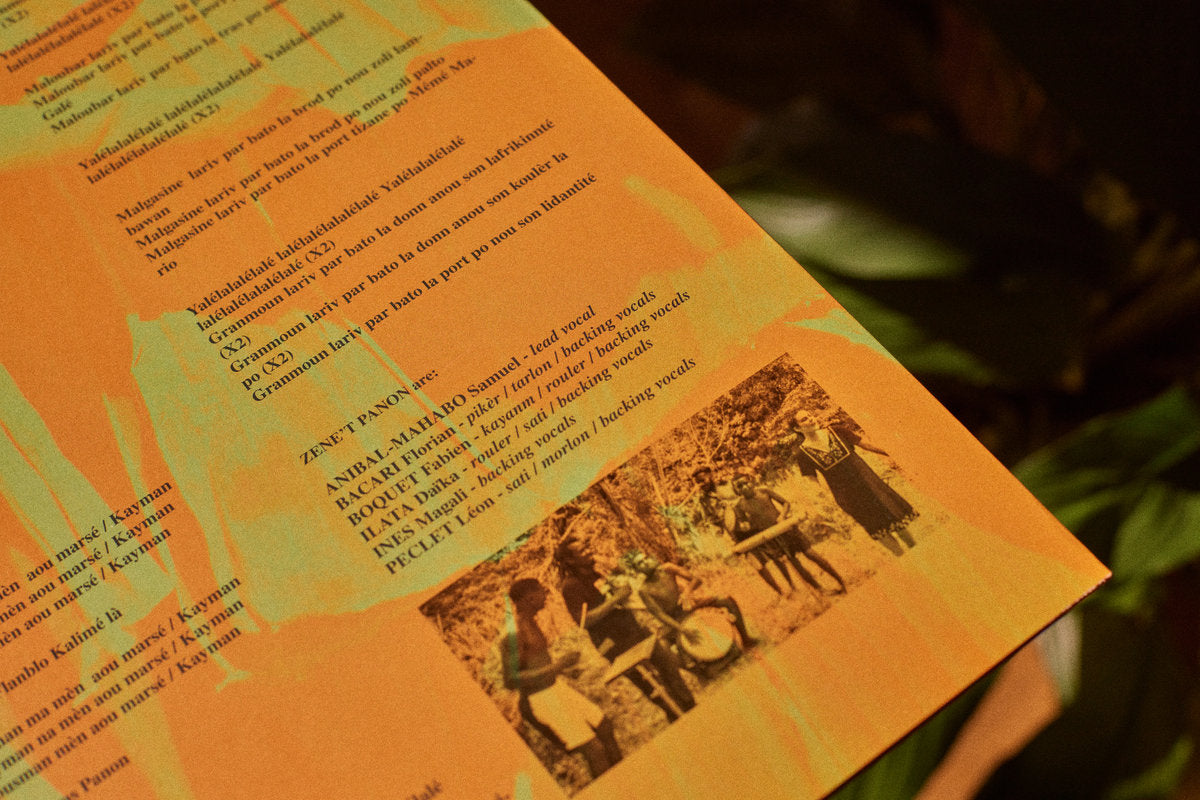 (X2)
Yalélalalélalé
lalélalalélalalélalé (X2)
Maloubar lariv par bato la
Maloubar lariv par bato la
Galé
Maloubar lariv par bato la tras po
Yalélalalélalé lalélalalélalalélalé Yalélalalélalé
lalélalalélalé (X2)
Malgasine lariv par bato la brod po nou zoli lam-
bawan
Malgasine lariv par bato la brod po nou zoli palto
Malgasine lariv par bato la port tizane po Mémé Ma-
rio
Yalélalalélalé lalélalalélalalélalé Yalélalalélalé
lalélalalélalalélalé (X2)
Granmoun lariv par bato la donn anou son lafrikinnté
(X2)
Granmoun lariv par bato la donn anou son koulèr la
po (X2)
Granmoun lariv par bato la port po nou son lidantité
ZENE'T PANON are:
ANIBAL-MAHABO Samuel - lead vocal
BACARI Florian - pikèr / tarlon / backing vocals
BOQUET Fabien - kayanm / rouler / backing vocals
ILATA Daïka - rouler / sati / backing vocals
INES Magali - backing vocals
PECLET Léon - sati / morlon / backing vocals
mèn aou marsé / Kayman
mèn aou marsé / Kayman
mèn aou marsé / Kayman
Kalimé là
ma mèn aou marsé / Kayman
na mèn aou marsé / Kayman
mèn aou marsé / Kayman
Panon